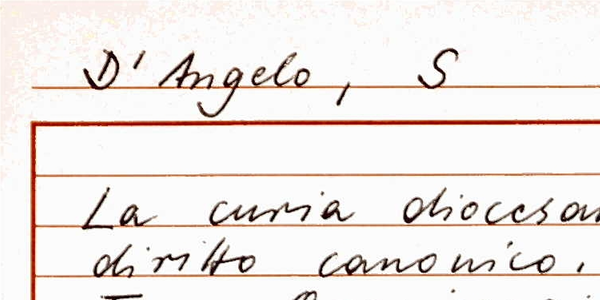 D'Angelo, S
La curia diocesan
diritto canonico.